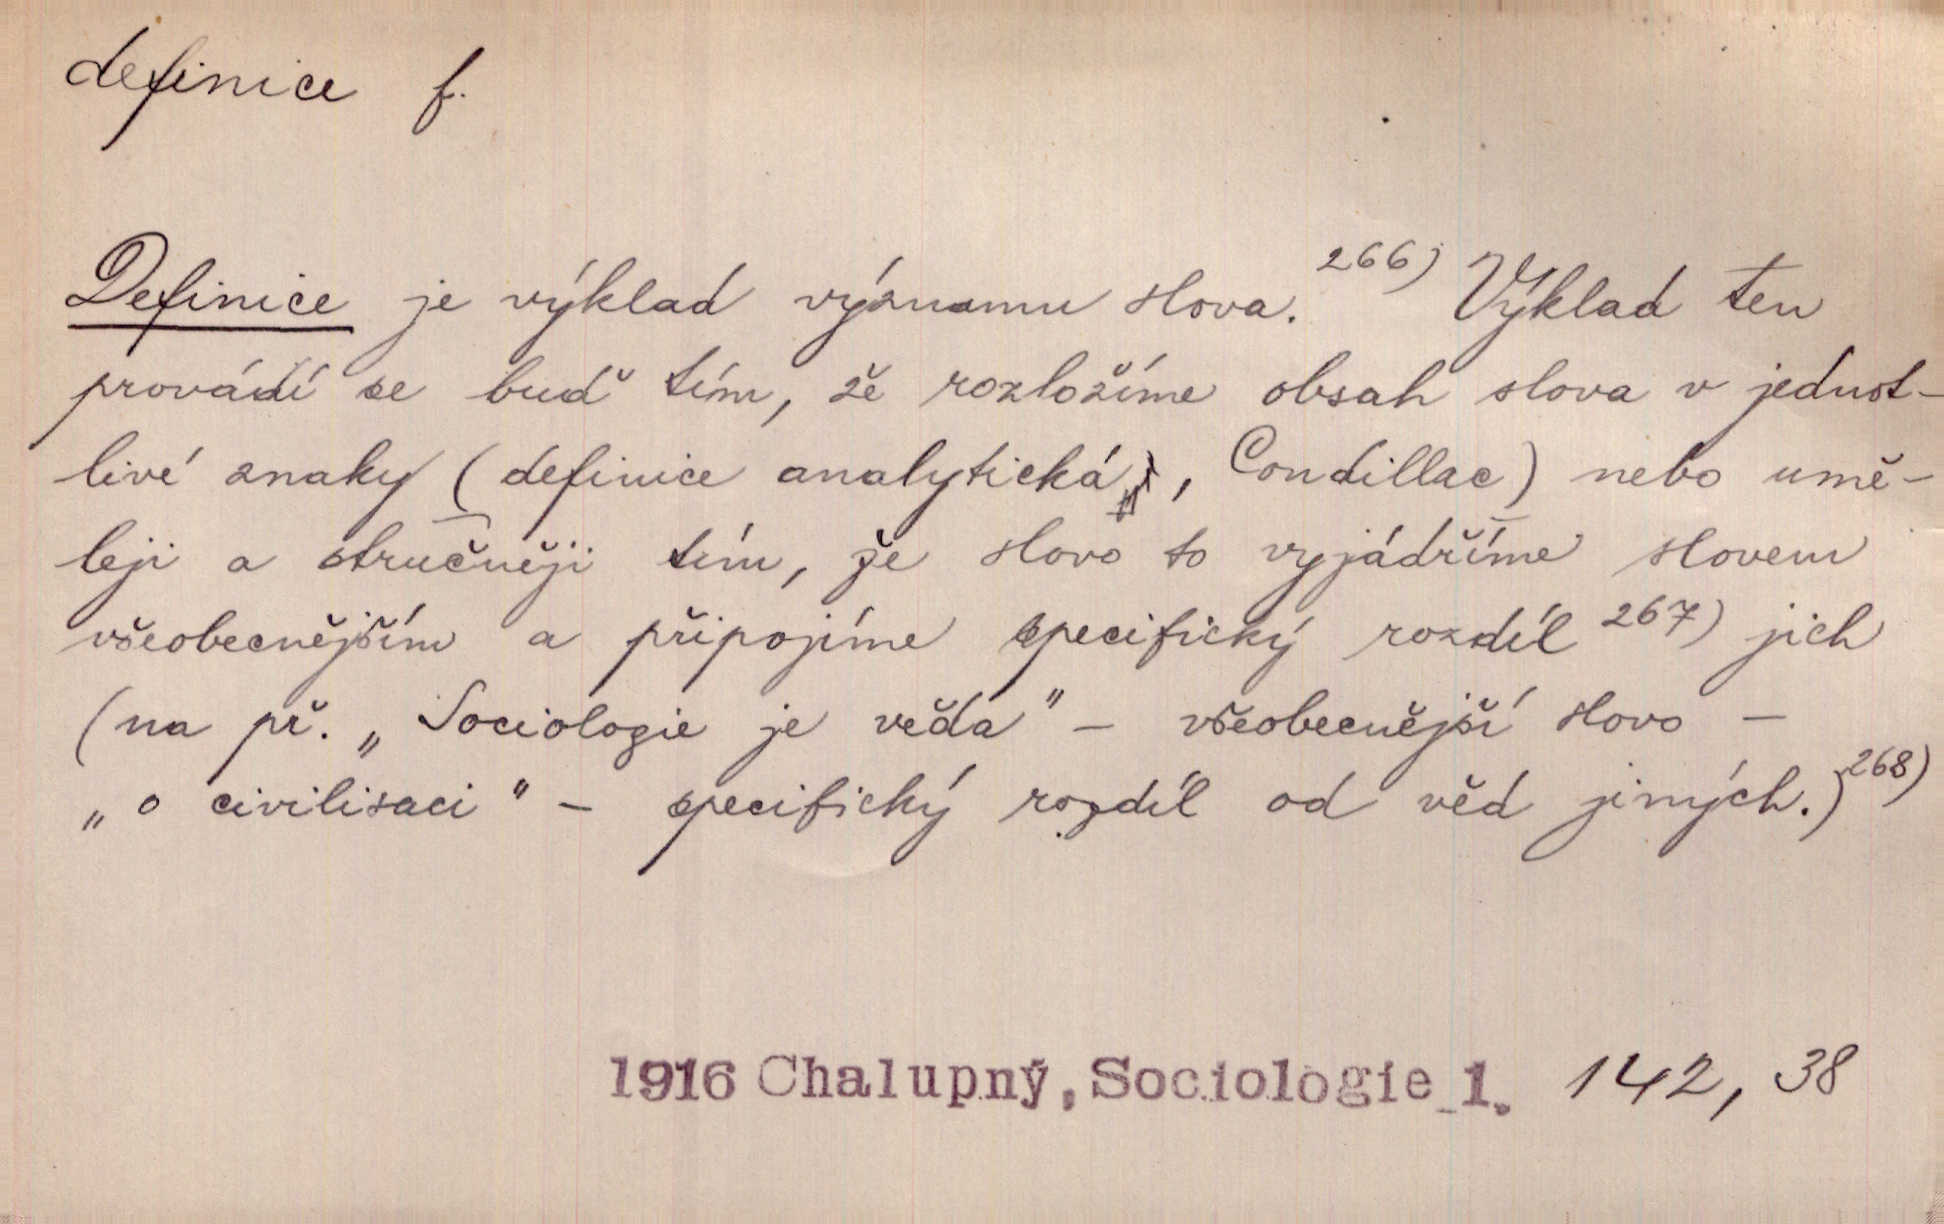 definice f.
Definice je výklad významu slova.²⁶⁶⁾ Výklad ten
provádí se buď tím, že rozložíme obsah slova v jednot-
livé znaky (definice analytická, Condillac) nebo umě-
leji a stručněji tím, že slovo to vyjádříme slovem
všeobecnějším a připojíme specifický rozdíl ²⁶⁷⁾ jich
(na př. „Sociologie je věda" – všeobecnější slovo –
„o civilisaci" – specifický rozdíl od věd jiných.)²⁶⁸⁾
1916 Chalupný, Sociologie 1. 142, 38